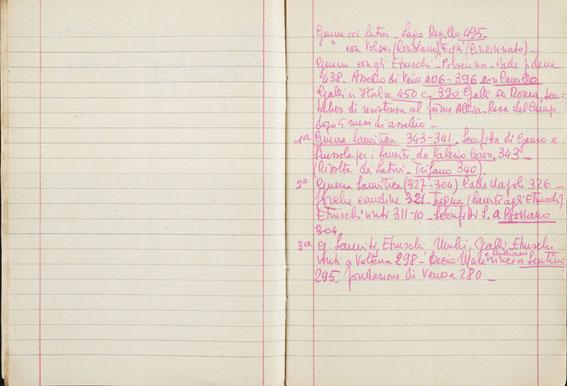 Guerra coi Latini - Lago Regillo 495.
" con Volsci (Coriolano), Equi (Cincinnato) -
Guerra con gli Etruschi - Porsenna - Cade Fidene
438. Assedio di Veio 406-396 con Camillo
Galli in Italia 450 e 390 Galli su Roma, ten-
tativo di resistenza al fiume Allia - Resa del Camp.
dopo 5 mesi di assedio -
1a Guerra Sannitica 343-341. Sconfitta di Gauro e
Suessola per i Sanniti da Valerio Corvo, 343 -
(Rivolta dei Latini - Trifano 340)
2a Guerra Sannitica (327-304) Cade Napoli 326 -
Forche caudine 321. Tregua (Sanniti agli Etruschi)
Etruschi vinti 311-10 - Sconfitti S. a Boviano
304.
3a G. Sanniti, Etruschi Umbri, Galli - Etruschi
vinti a Volterra 298 - Decio Mure vince a Sentino
295 fondazione di Venosa 280 -